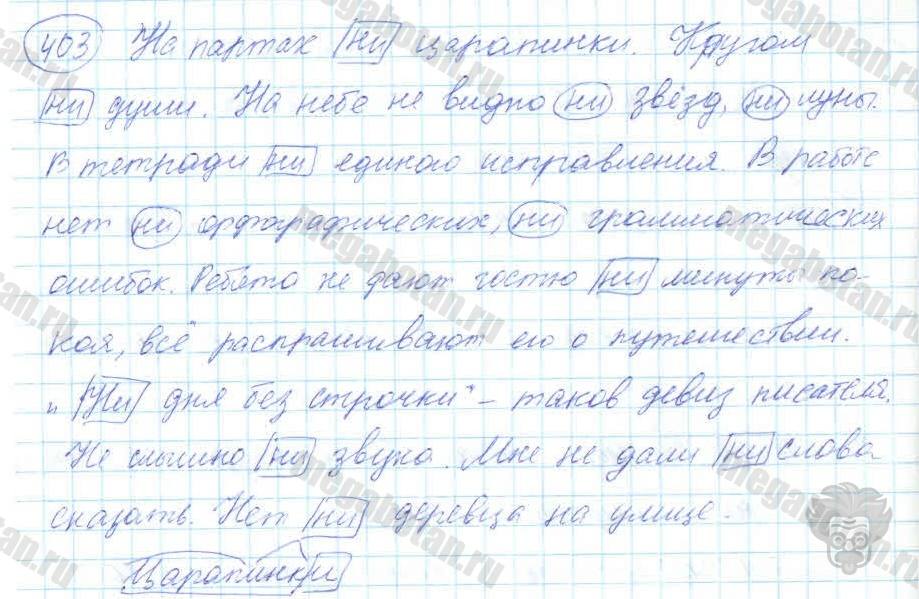 403 На партах ни царапинки. Кругом
ни души. На небе не видно ни звёзд, ни луны.
В тетради ни единого исправления. В работе
нет ни орфографических, ни грамматических
ошибок. Ребята не дают гостю ни минуты по-
коя, всё распрашивают его о путешествии.
„Ни дня без строчки" – таков девиз писателя.
Не слышно ни звука. Мне не дали ни слова
сказать. Нет ни деревца на улице.
Царапинки
megabotan.ru